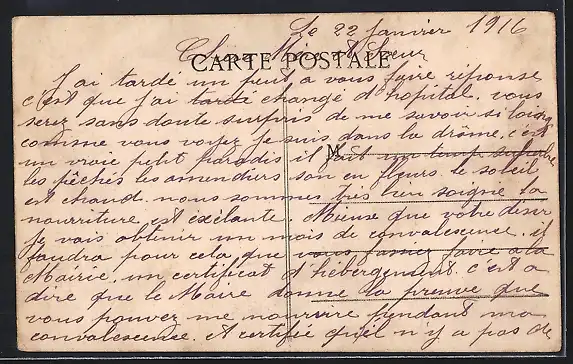 Le 22 Janvier 1916
Chère Mère & Sœur
CARTE POSTALE
J'ai tardé un peut a vous faire réponse
c'est que j'ai tardé changé d'hopital. vous
serez sans doute surpris de me savoir si loing
comme vous voyez je suis dans la drôme. c'est
M
un vraie petit paradis il fait un temps superbe
les pêchés les amendiers son en fleurs. le soleil
est chaud. nous sommes très bien soigné la
nourriture est exélante. que votre désir
je vais obtenir un mois de convalescence. il
faudra pour cela que vous faire a la
Mairie. un certificat d'hébergement. c'est a
dire que le Maire donne la preuve que
vous pouvez me nourrire pendant ma
convalescence. et certifié qu'il n'y a pas de